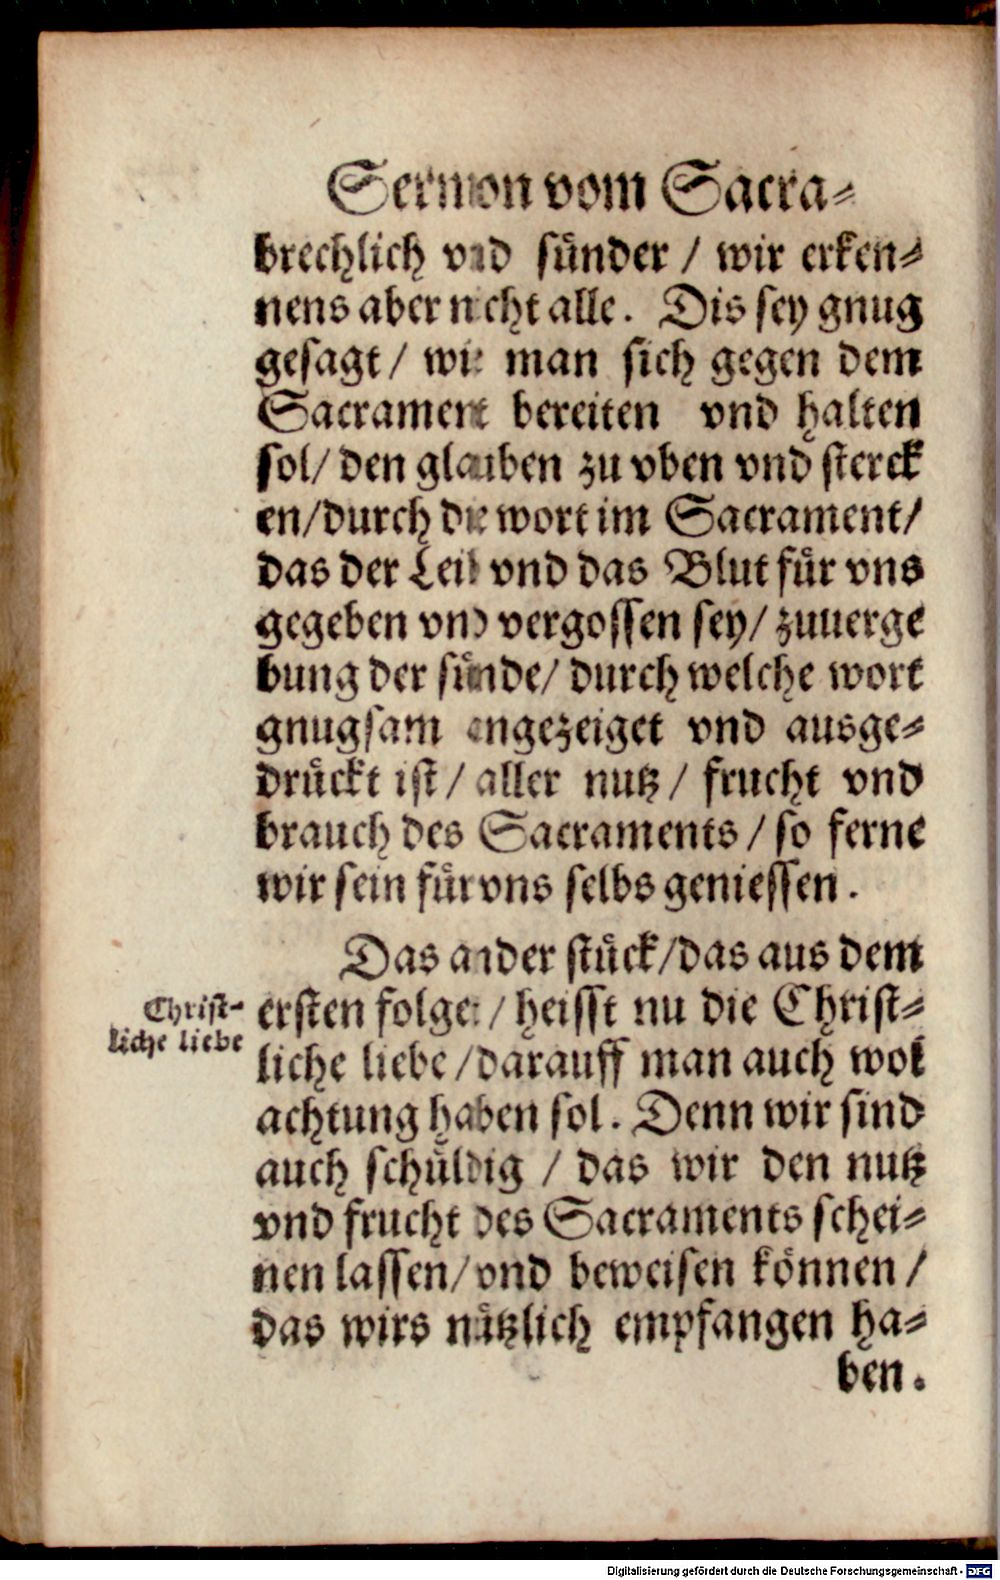 Sermon vom Sacra⸗
brechlich vnd sünder / wir erken⸗
nens aber nicht alle. Dis sey gnug
gesagt / wie man sich gegen dem
Sacrament bereiten vnd halten
sol / den glauben zu vben vnd sterck
en / durch die wort im Sacrament /
das der Leib vnd das Blut für vns
gegeben vnd vergossen sey / zuuerge
bung der sünde / durch welche wort
gnugsam angezeiget vnd ausge⸗
drückt ist / aller nutz / frucht vnd
brauch des Sacraments / so ferne
wir sein für vns selbs geniessen.
Das ander stück / das aus dem
Christ⸗
liche liebe
ersten folget / heisst nu die Christ⸗
liche liebe / darauff man auch wol
achtung haben sol. Denn wir sind
auch schüldig / das wir den nutz
vnd frucht des Sacraments schei⸗
nen lassen / vnd beweisen können /
das wirs nützlich empfangen ha⸗
ben.
Digitalisierung gefördert durch die Deutsche Forschungsgemeinschaft - DFG